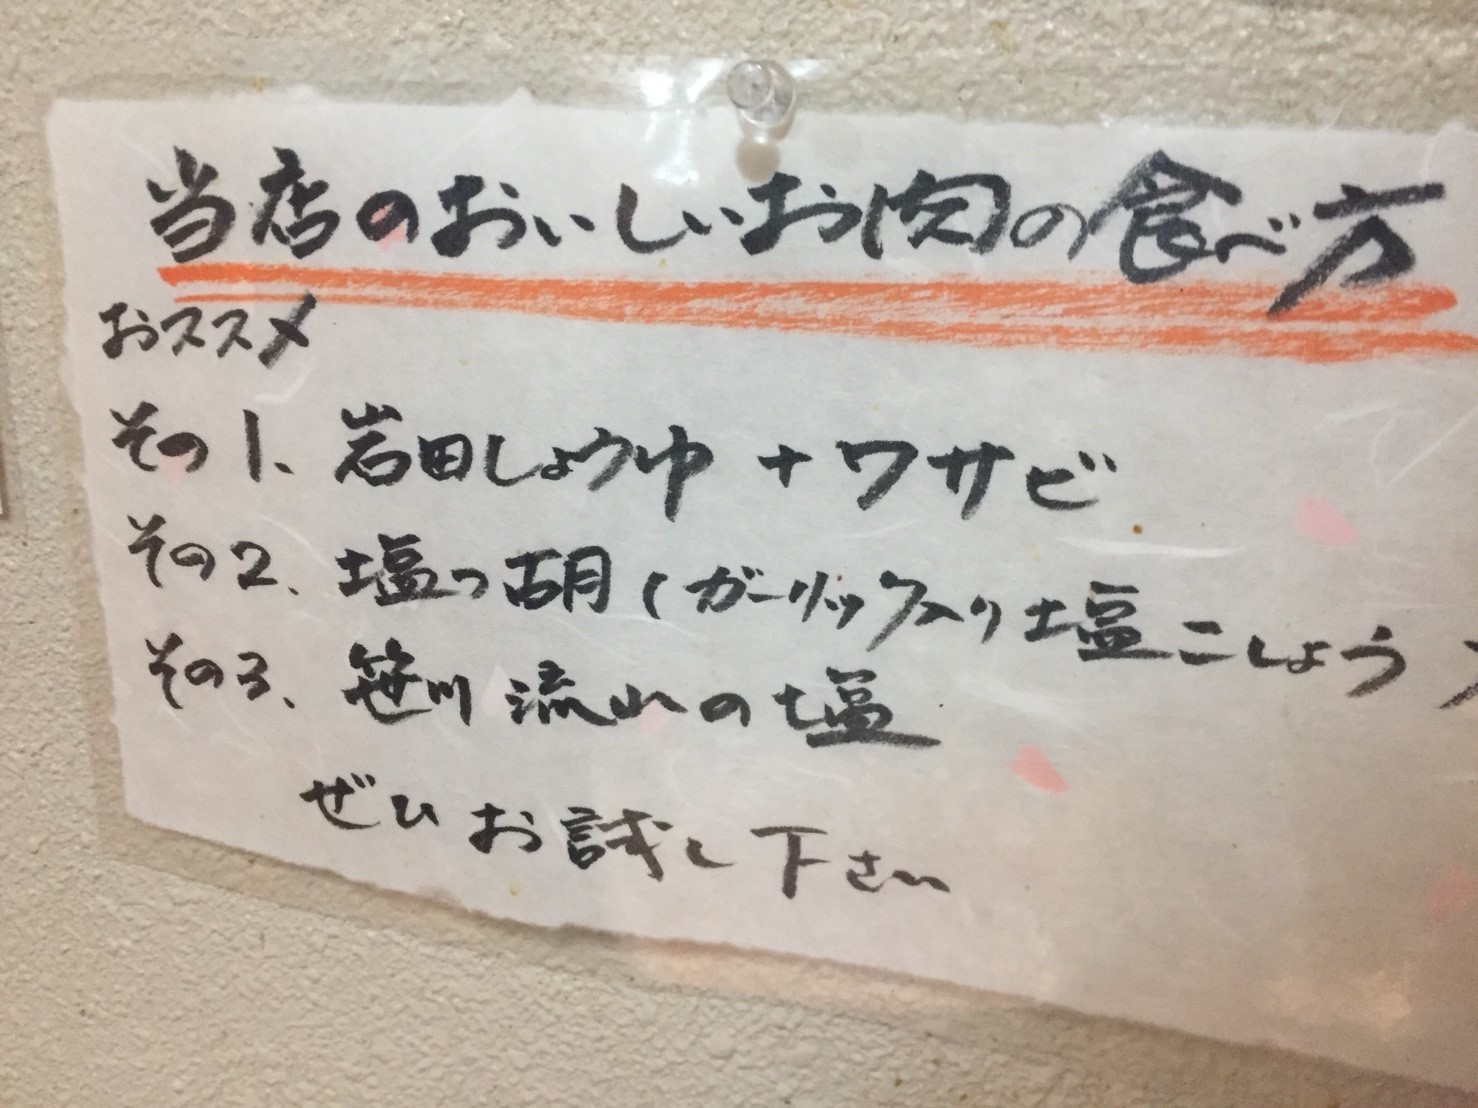 当店のおいしいお肉の食べ方
おススメ
その1、岩田しょうゆ+ワサビ
その2、塩っ胡(ガーリック入り塩こしょう)
その3、笹川流れの塩
ぜひお試し下さい